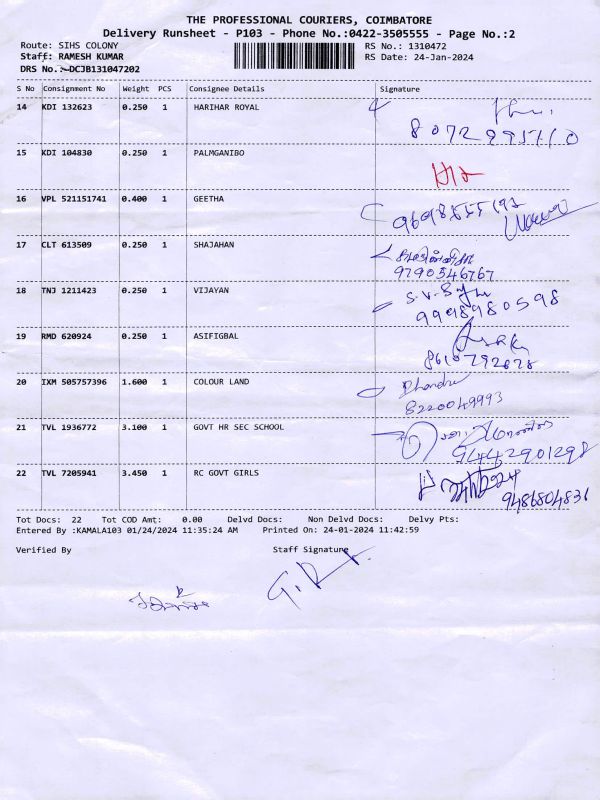 THE PROFESSIONAL COURIERS, COIMBATORE
Delivery Runsheet - P103 - Phone No.:0422-3505555 - Page No.:2
Route: SIHS COLONY RS No.: 1310472
Staff: RAMESH KUMAR RS Date: 24-Jan-2024
DRS No.:-DCJB131047202
S No Consignment No Weight PCS Consignee Details Signature
14 KDI 132623 0.250 1 HARIHAR ROYAL
15 KDI 104830 0.250 1 PALMGANIBO
16 VPL 521151741 0.400 1 GEETHA
17 CLT 613509 0.250 1 SHAJAHAN
9790546767
18 TNJ 1211423 0.250 1 VIJAYAN
9998980598
19 RMD 620924 0.250 1 ASIFIGBAL
20 IXM 505757396 1.600 1 COLOUR LAND
8220049993
21 TVL 1936772 3.100 1 GOVT HR SEC SCHOOL
9442901298
22 TVL 7205941 3.450 1 RC GOVT GIRLS
9486804831
Tot Docs: 22 Tot COD Amt: 0.00 Delvd Docs: Non Delvd Docs: Delvy Pts:
Entered By :KAMALA103 01/24/2024 11:35:24 AM Printed On: 24-01-2024 11:42:59
Verified By Staff Signature